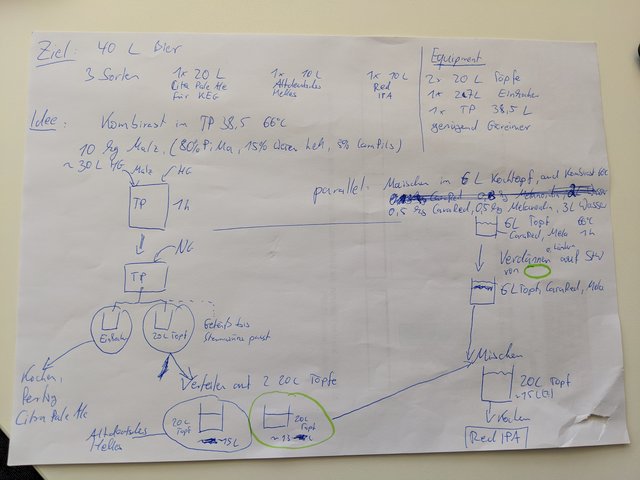 Ziel: 40 L Bier
3 Sorten
1x 20 L
Citra Pale Ale
für KEG
1x 10 L
Altdeutsches
Helles
1x 10 L
Red
IPA
Equipment
2x 20 L Töpfe
1x 27L Einkocher
1x TP 38,5 L
genügend Gäreimer
Idee: Kombirast in TP 38,5 66°C
10 kg Malz, (80% PiMa, 15% Wiener, 5% CaraPils)
~ 30 L HG
Malz HG
TP 1h
NG
TP
Einkocher
20L Topf
Gefäß bis
Stammwürze passt
Kochen,
Fertig
Citra Pale Ale
Verteilen auf 2 20L Töpfe
Altdeutsches
Helles
20L
Topf
~15L
20L
Topf
parallel: Maischen in 6 L Kochtopf, auch Kombirast 66°C
0,5 kg CaraRed, 0,5 kg Melanoidin, 3 L Wasser
6L Topf 66°C
CaraRed, Mela 1h
Verdünnen auf StW
von
6L Topf, CaraRed, Mela
Mischen
20L Topf
Kochen
Red IPA